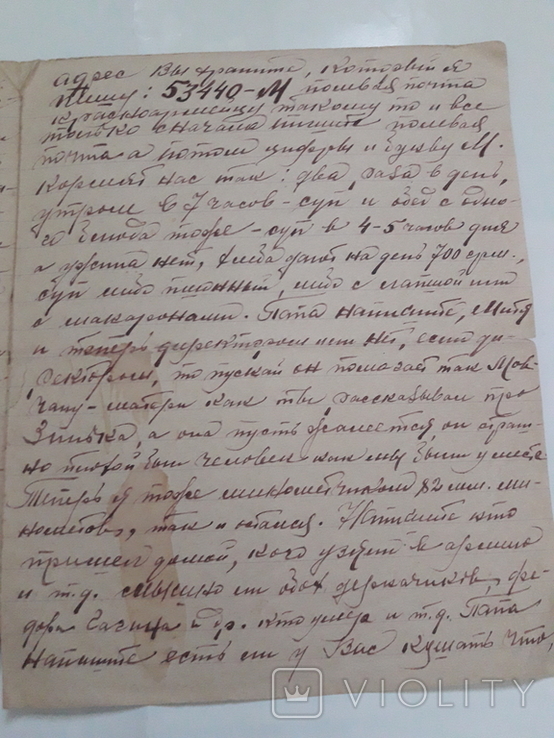 адрес Вы храните, который я
пишу: 53440-М полевая почта
красноармейцу такому то и все
только сначала пишите полевая
почта а потом цифры и букву М.
Кормят нас так: два раза в день,
утром в 7 часов - суп и обед с одно-
го блюда тоже - суп в 4-5 часов дня
а ужина нет, хлеба дают на день 700 грам.,
суп либо пшенный, либо с лапшой или
с макаронами. Папа напишите, Митя
и теперь директором или нет, если ди-
ректором, то пускай он помогает так
матери как ты рассказывал про
а она пусть он страш-
но плохой был человек как мы были у месте
Теперь я тоже минометчиком 82 мм. ми-
нометов, так и остался. Напишите кто
пришел домой, кого узяли в армию
и т.д. ли обох деркачиков, фе-
дора и др. кто умер и т.д. Папа
напишите есть ли у Вас кушать что,
VIOLITY